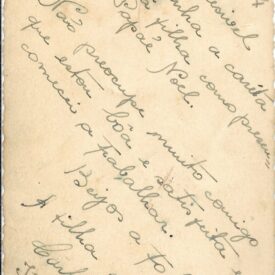 a carta
filha como presen
Papãe Noel.
Não preocupe muito comigo
que estou bôa e satisfeita
comecei a trabalhar.
Beijos a to
A filha